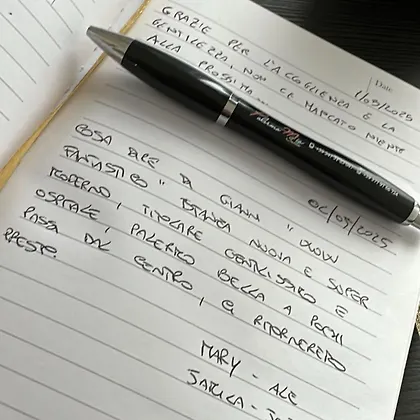 Date
1/05/2025
GRAZIE PER L'ACCOGLIENZA E LA
GENTILEZZA, NON CE MANCATO NIENTE
ALLA PROSSIMA...
02/05/2025
COSA DIRE DI GIANNI " WOW
FANTASTICO " STANZA NUOVA E SUPER
MODERNO, TITOLARE GENTILISSIMO E
OSPITALE, PALERMO BELLA A POCHI
PASSI DAL CENTRO, CI RITORNEREMO
PRESTO.
MARY - ALE